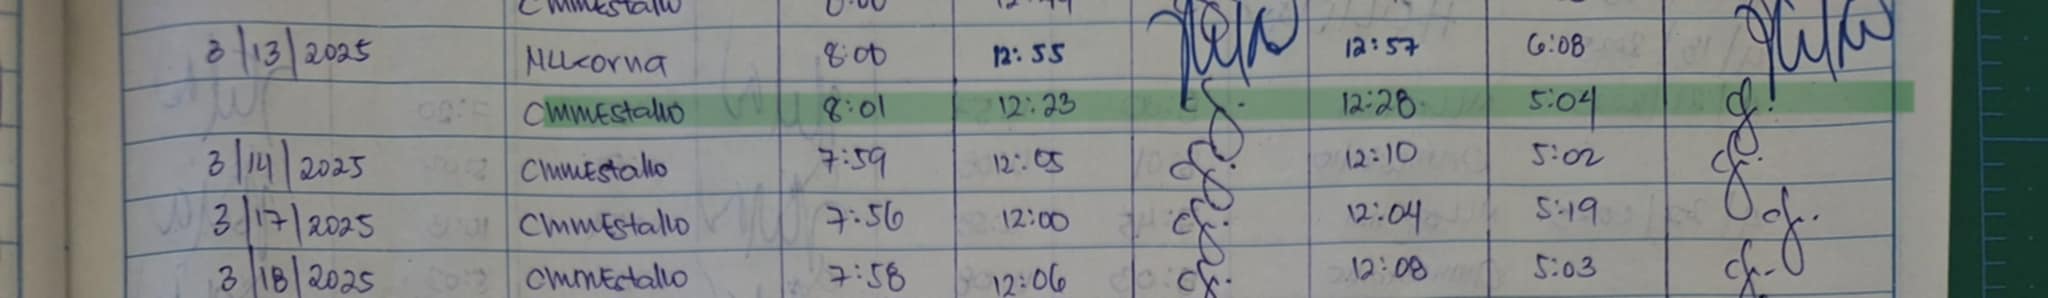 CMMEstallo 8:00
3/13/2025 8:00 12:55 12:57 6:08
CMMEstallo 8:01 12:23 12:28 5:04
3/14/2025 CMMEstallo 7:59 12:05 12:10 5:02
3/17/2025 CMMEstallo 7:56 12:00 12:04 5:19
3/18/2025 CMMEstallo 7:58 12:06 12:08 5:03